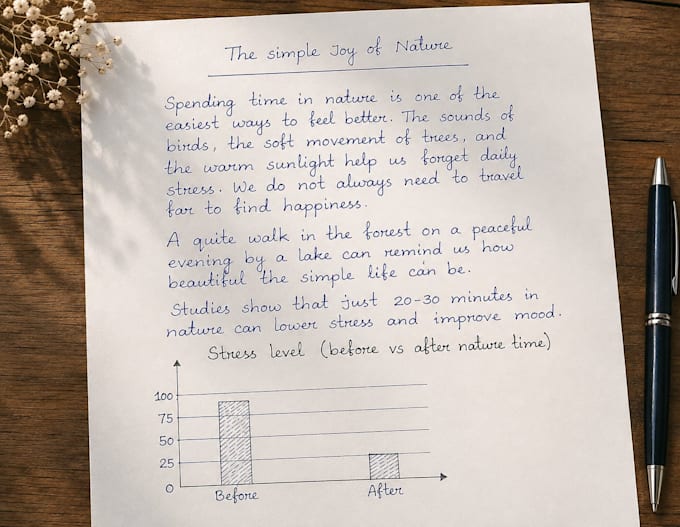 The simple Joy of Nature
Spending time in nature is one of the
easiest ways to feel better. The sounds of
birds, the soft movement of trees, and
the warm sunlight help us forget daily
stress. We do not always need to travel
far to find happiness.
A quite walk in the forest on a peaceful
evening by a lake can remind us how
beautiful the simple life can be.
Studies show that just 20-30 minutes in
nature can lower stress and improve mood.
Stress level (before vs after nature time)
100
75
50
25
0
Before After